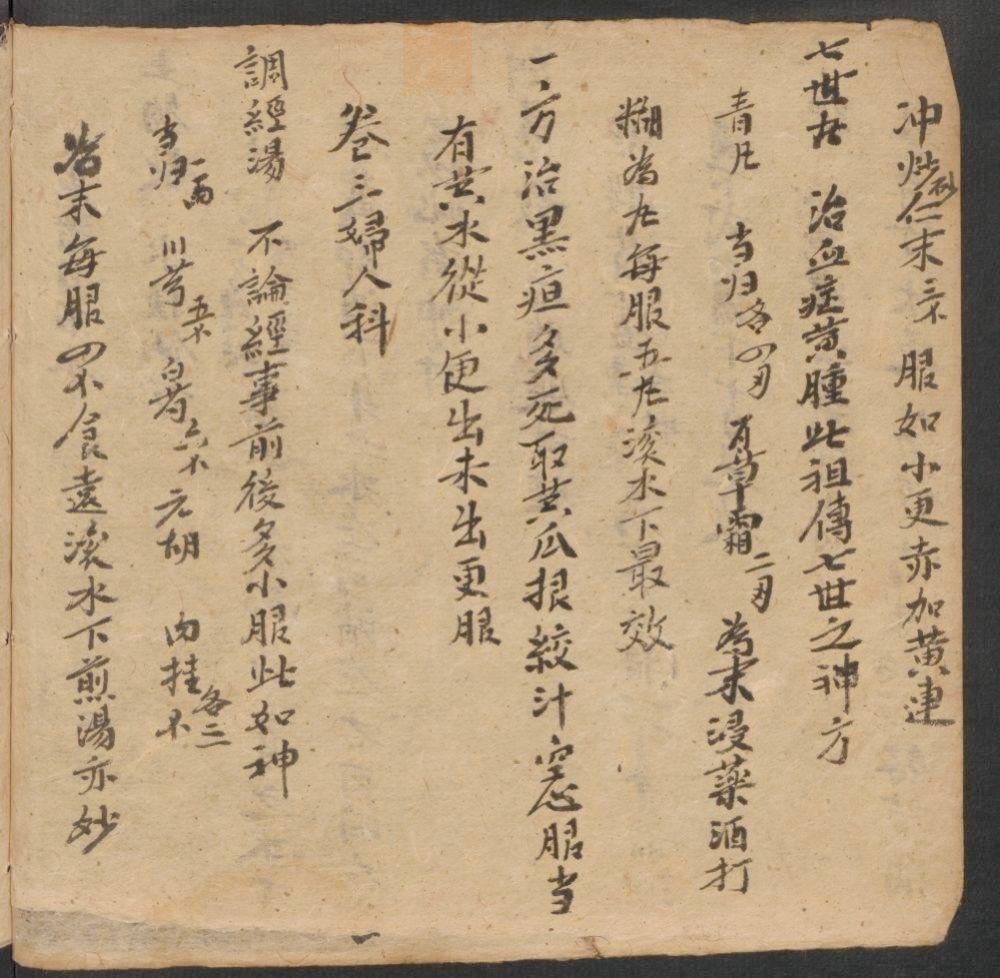 冲㷀仁末三不 服如小更赤加黄連
七世尤 治血症黄腫此祖傳七世之神方
青凡 当归各四刄 百草霜二刄 為末浸藥酒打
糊為尤每服五尤滚水下最效
一方治黑疸多死取苽瓜根絞汁空心服当
有黄水從小便出未出更服
卷三婦人科
調經湯 不論經事前後多小服此如神
当归一両 川芎五不 白芍六不 元胡 肉挂各三不
為末每服四不食遠滚水下煎湯亦妙